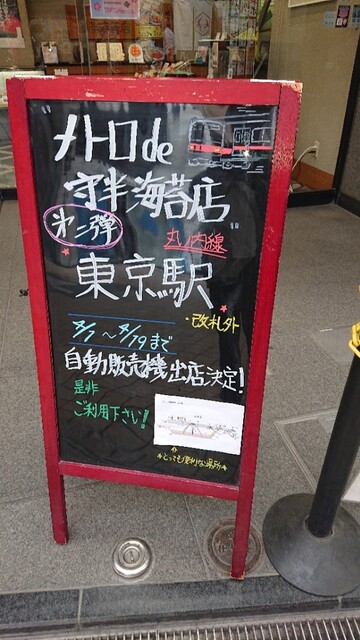 "メトロde
守半海苔店"
第二弾
丸ノ内線
東京駅
・改札外
自動販売機出店決定!
是非
ご利用下さい!
★とっても便利な場所★